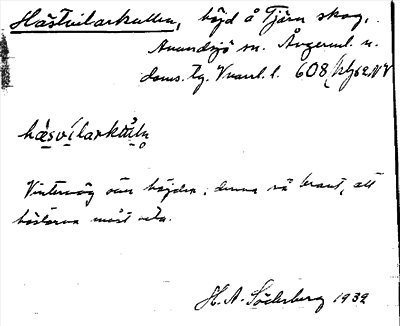 Hästvilarkullen, höjd å Tjärn skog,
Anundsjö sn. Ångerml. n.
doms. tg. Vuxnl. l. 608
hæsvilarkulln
Vinterväg över höjden; denna så brant, att
hästarna måst vila.
H. A. Söderberg 1932